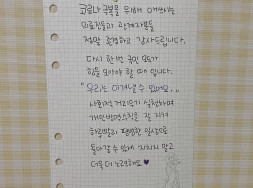 코로나 극복을 위해 애쓰시는
의료진들과 관계자분들
정말 존경하고 감사드립니다.
다시 한번 국민 모두가
힘을 모아야 할 때 입니다.
"우리는 이겨낼 수 있어요."
사회적 거리두기 실천하며
개인방역수칙을 잘 지켜
하루빨리 평범한 일상으로
돌아갈 수 있게 지치지 말고
더욱 더 노력해요♥